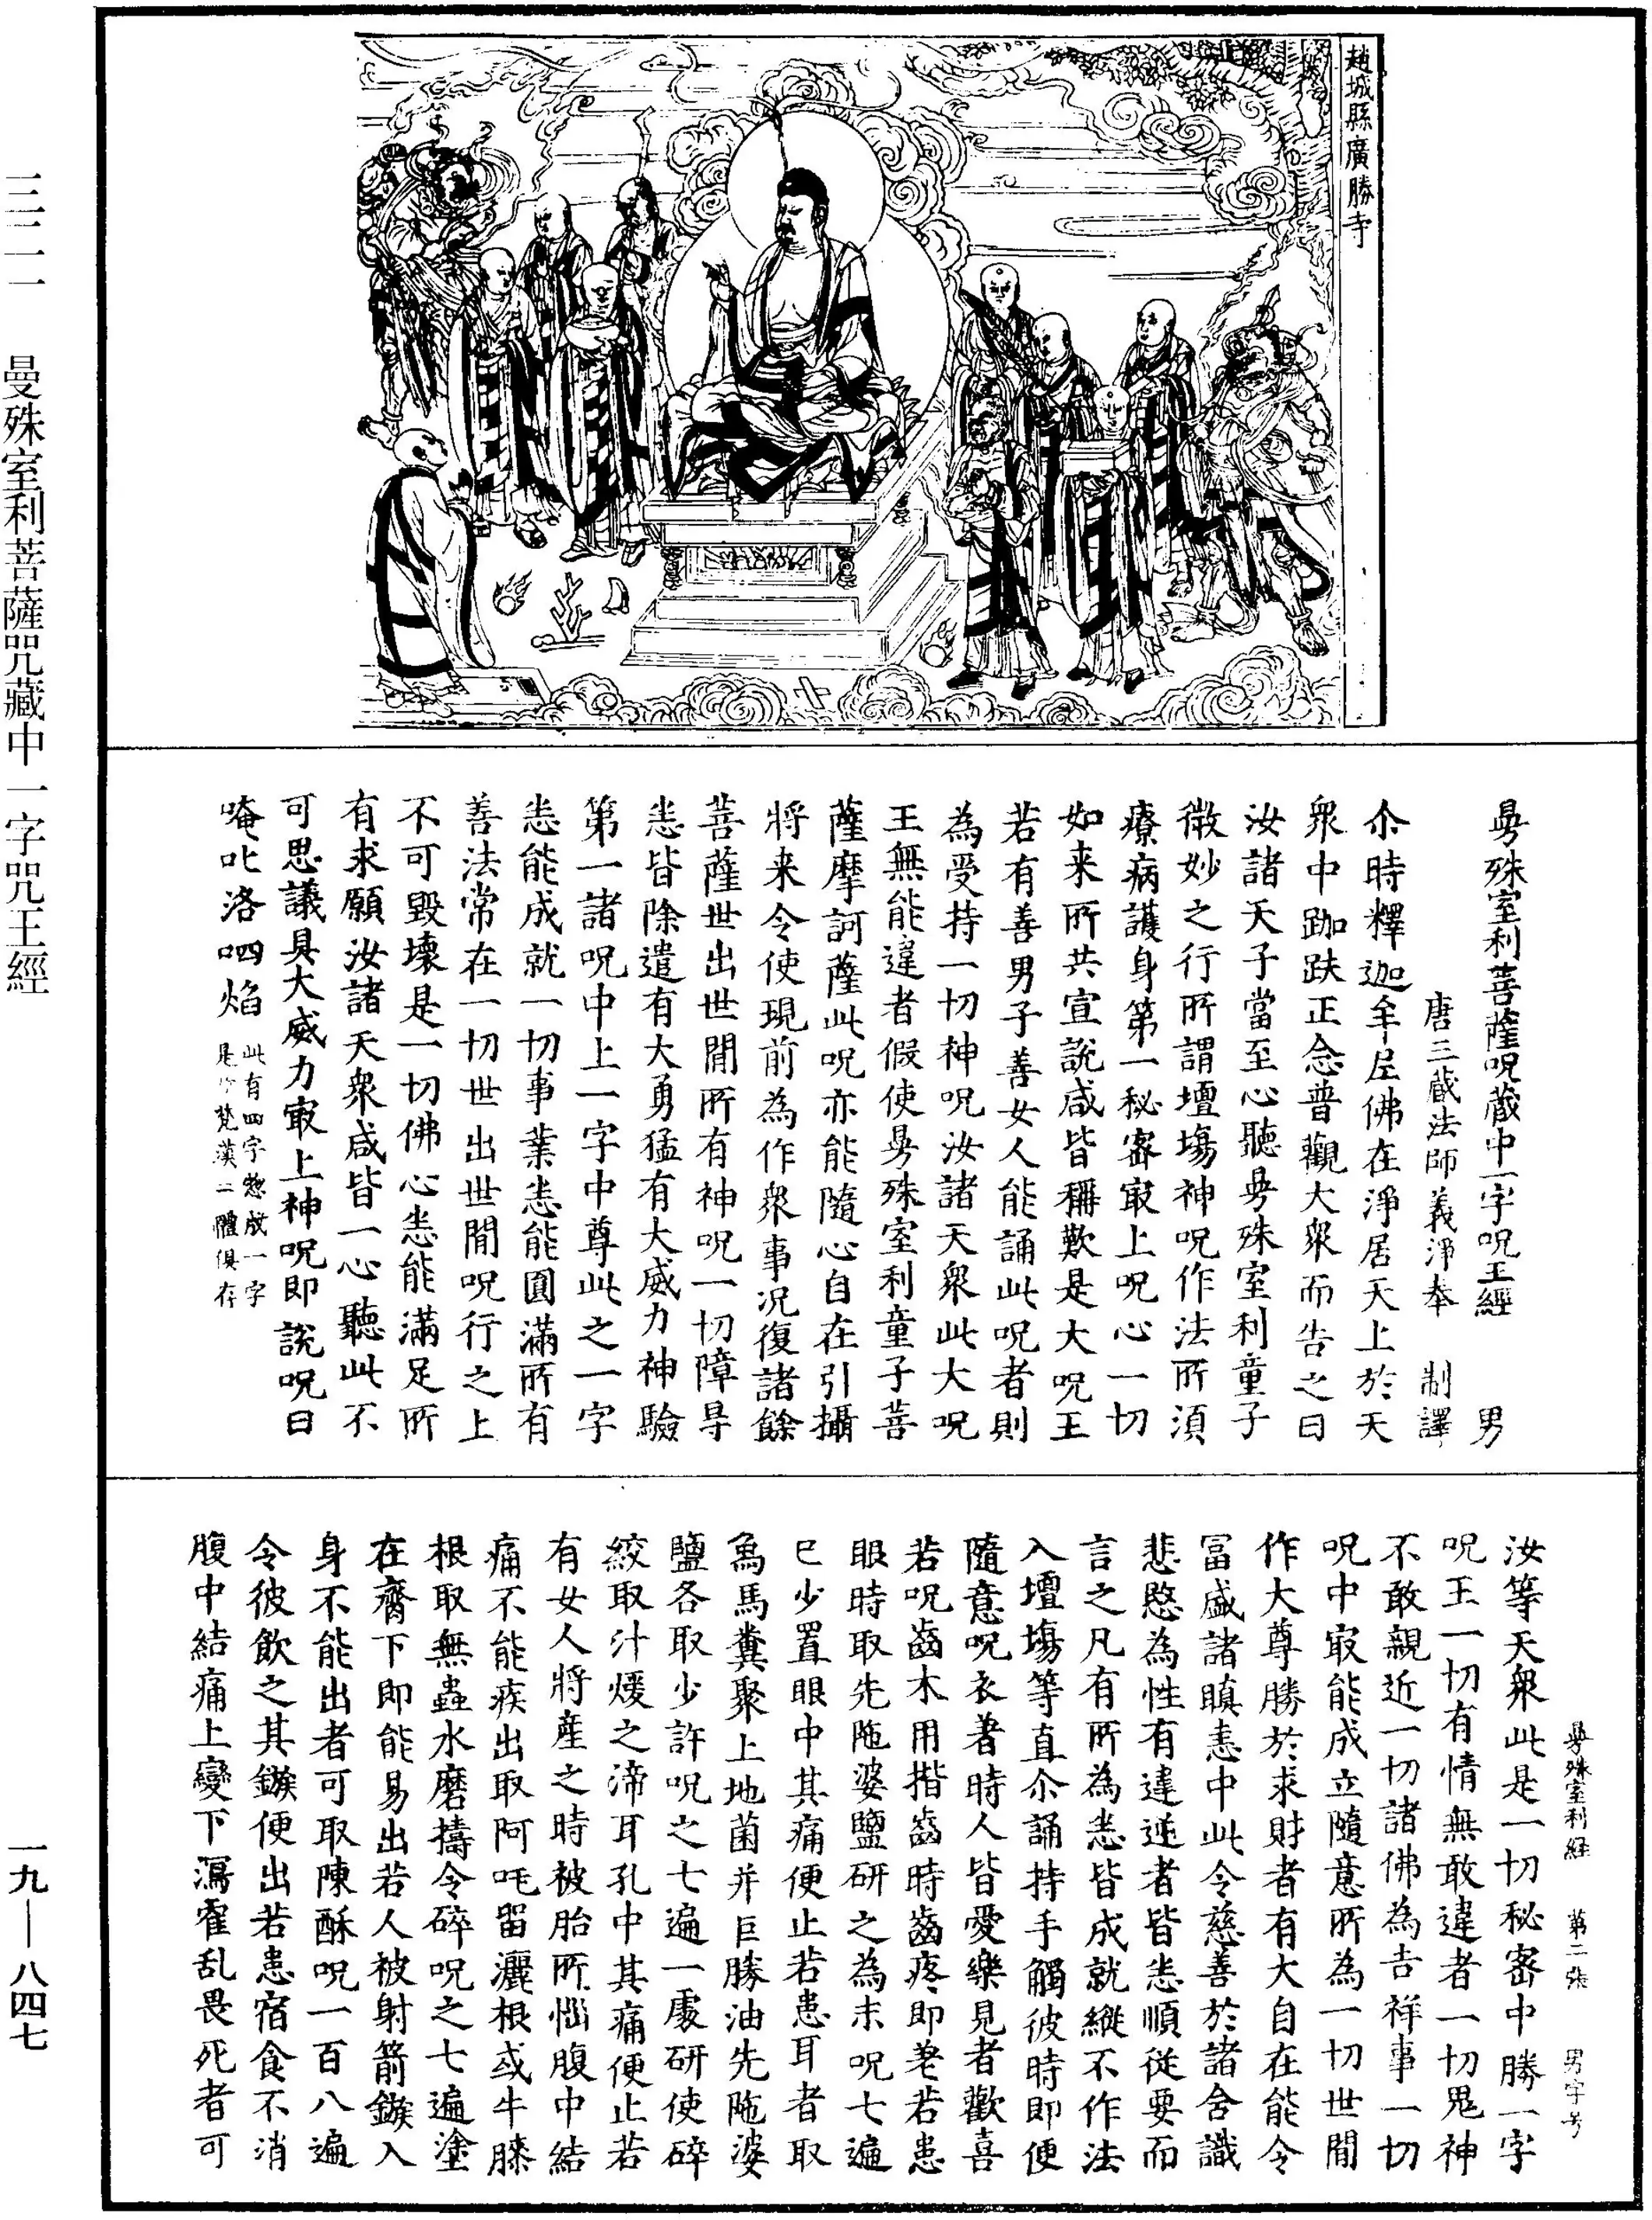 趙城縣廣勝寺
曼殊室利菩薩呪藏中一字呪王經　男
唐三藏法師義淨奉　制譯
尒時釋迦牟尼佛在淨居天上於天
衆中跏趺正念普觀大衆而告之曰
汝諸天子當至心聽曼殊室利童子
微妙之行所謂壇場神呪作法所須
療病護身第一秘密㝡上呪心一切
如来所共宣說咸皆稱歎是大呪王
若有善男子善女人能誦此呪者則
為受持一切神呪汝諸天衆此大呪
王無能違者假使曼殊室利童子菩
薩摩訶薩此呪亦能隨心自在引攝
將来令使現前為作衆事况復諸餘
菩薩世出世間所有神呪一切障㝵
悉皆除遣有大勇猛有大威力神驗
第一諸呪中上一字中尊此之一字
悉能成就一切事業悉能圓滿所有
善法常在一切世出世間呪行之上
不可毀壞是一切佛心悉能滿足所
有求願汝諸天衆咸皆一心聽此不
可思議具大威力㝡上神呪即說呪曰
唵叱洛呬焰 此有四字惣成一字
是梵漢二體俱存
曼殊室利経　第二張　男字号
汝等天衆此是一切秘密中勝一字
呪王一切有情無敢違者一切鬼神
不敢親近一切諸佛為吉祥事一切
呪中㝡能成立隨意所為一切世間
作大尊勝於求財者有大自在能令
冨盛諸瞋恚中此令慈善於諸含識
悲愍為性有違逆者皆悉順從要而
言之凡有所為悉皆成就縱不作法
入壇場等直尒誦持手觸彼時即便
隨意呪衣著時人皆愛樂見者歡喜
若呪齒木用揩齒時齒疼即差若患
眼時取先陁婆鹽研之為末呪七遍
已少置眼中其痛便止若患耳者取
象馬糞聚上地菌并巨勝油先陁婆
鹽各取少許呪之七遍一處研使碎
絞取汁煖之渧耳孔中其痛便止若
有女人將產之時被胎所惱腹中結
痛不能疾出取阿吒留灑根或牛膝
根取無蟲水磨擣令碎呪之七遍塗
在齊下即能易出若人被射箭鏃入
身不能出者可取陳酥呪一百八遍
令彼飲之其鏃便出若患宿食不消
腹中結痛上變下瀉霍乱畏死者可
三三二一　曼殊室利菩薩咒藏中一字咒王經
一九—八四七